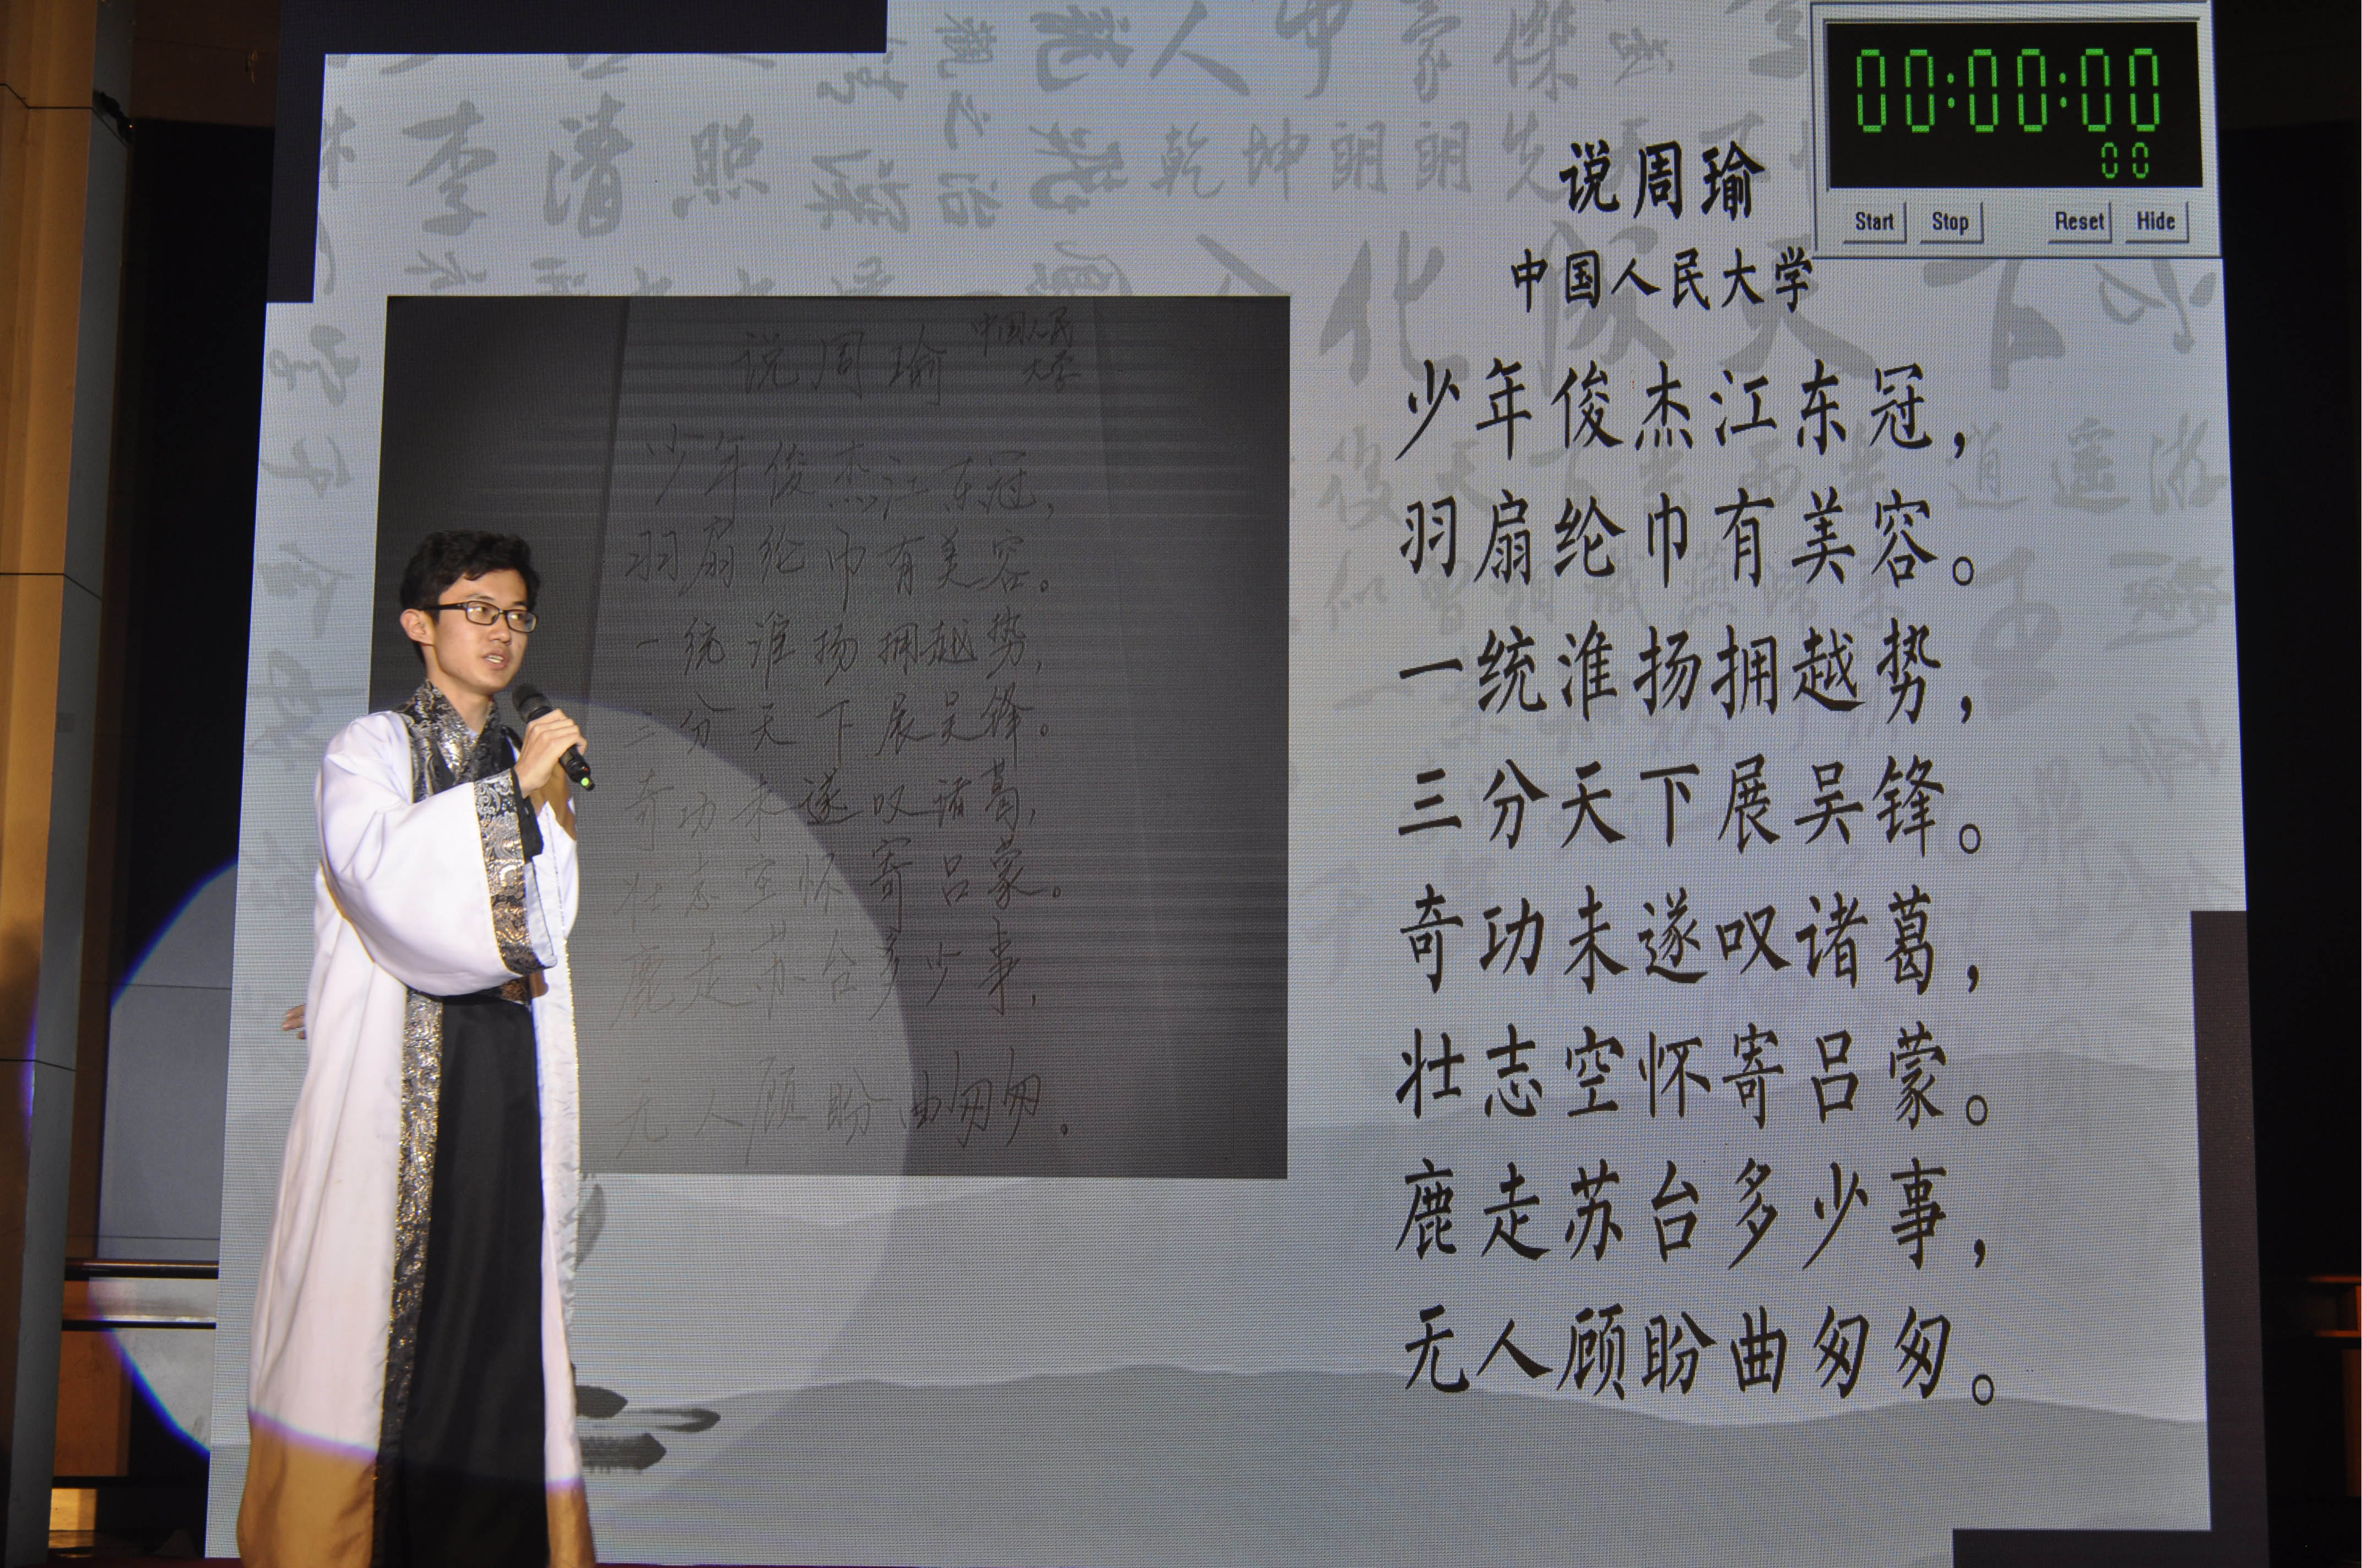 00:00:00
00
Start Stop Reset Hide
说周瑜
中国人民大学
少年俊杰江东冠，
羽扇纶巾有美容。
一统淮扬拥越势，
三分天下展吴锋。
奇功未遂叹诸葛，
壮志空怀寄吕蒙。
鹿走苏台多少事，
无人顾盼曲匆匆。
说周瑜 中国人民
大学
少年俊杰江东冠，
羽扇纶巾有美容。
一统淮扬拥越势，
三分天下展吴锋。
奇功未遂叹诸葛，
壮志空怀寄吕蒙。
鹿走苏台多少事，
无人顾盼曲匆匆。
李清照
人中豪傑
乾坤朗朗